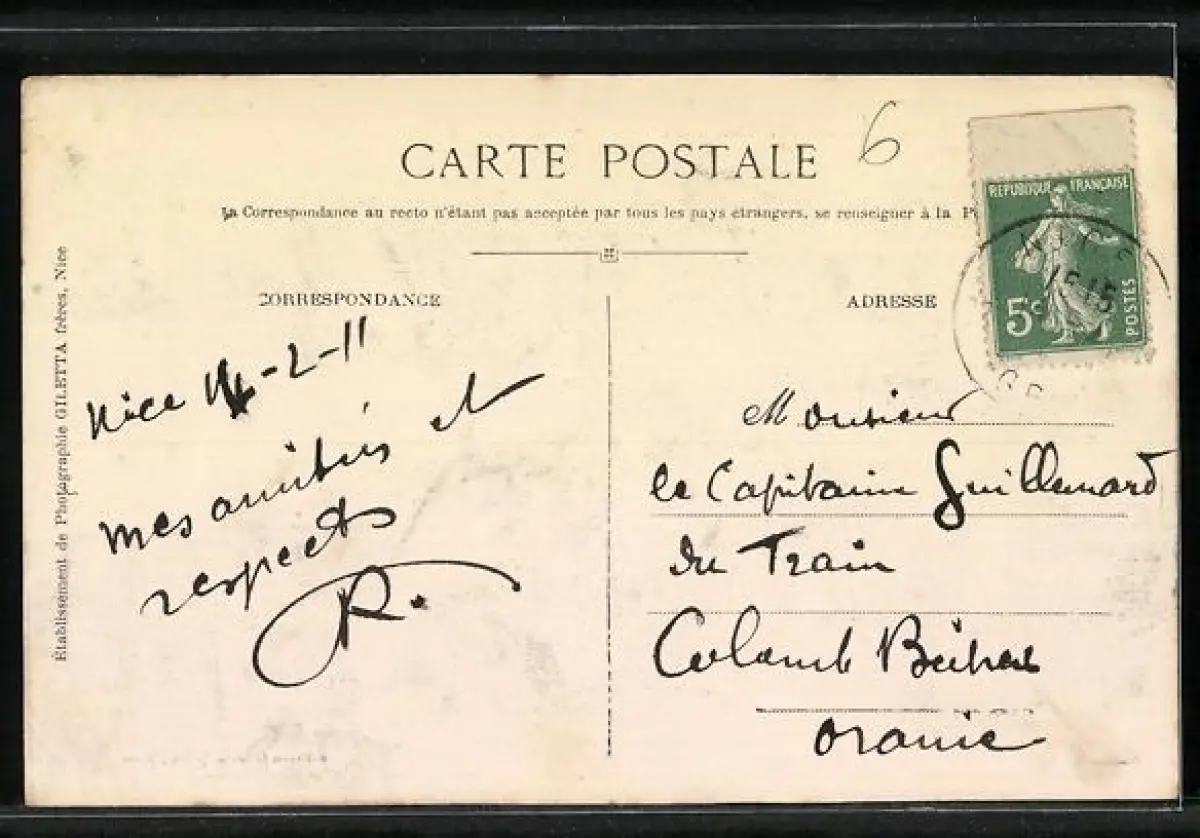 CARTE POSTALE
6
La Correspondance au recto n'étant pas acceptée par tous les pays étrangers, se renseigner à la P
REPUBLIQUE FRANÇAISE
5c
POSTES
NICE
15 15
CORRESPONDANCE
Nice 14-2-11
mes amitiés et
respects
R.
ADRESSE
Monsieur
le Capitaine Guillemard
du Train
Colomb Béchar
Oranie
Établissement de Photographie GILETTA frères, Nice